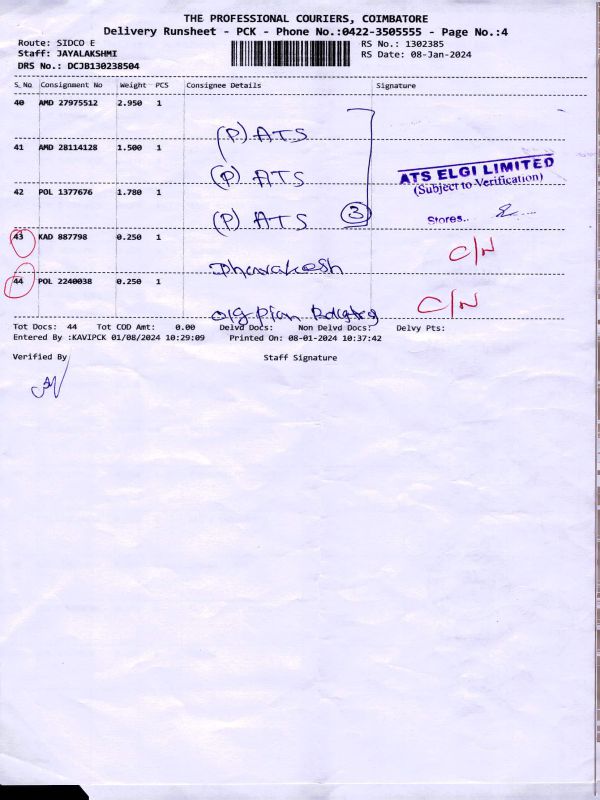 THE PROFESSIONAL COURIERS, COIMBATORE
Delivery Runsheet - PCK - Phone No.:0422-3505555 - Page No.:4
Route: SIDCO E
RS No.: 1302385
Staff: JAYALAKSHMI
RS Date: 08-Jan-2024
DRS No.: DCJB130238504
S_No Consignment No Weight PCS Consignee Details Signature
40 AMD 27975512 2.950 1
(P) ATS
41 AMD 28114128 1.500 1
ATS ELGI LIMITED
(Subject to Verification)
(P) ATS
42 POL 1377676 1.780 1
(P) ATS 3
Stores..
43 KAD 887798 0.250 1
C/N
44 POL 2240038 0.250 1
C/N
Tot Docs: 44 Tot COD Amt: 0.00 Delvd Docs: Non Delvd Docs: Delvy Pts:
Entered By :KAVIPCK 01/08/2024 10:29:09 Printed On: 08-01-2024 10:37:42
Verified By Staff Signature